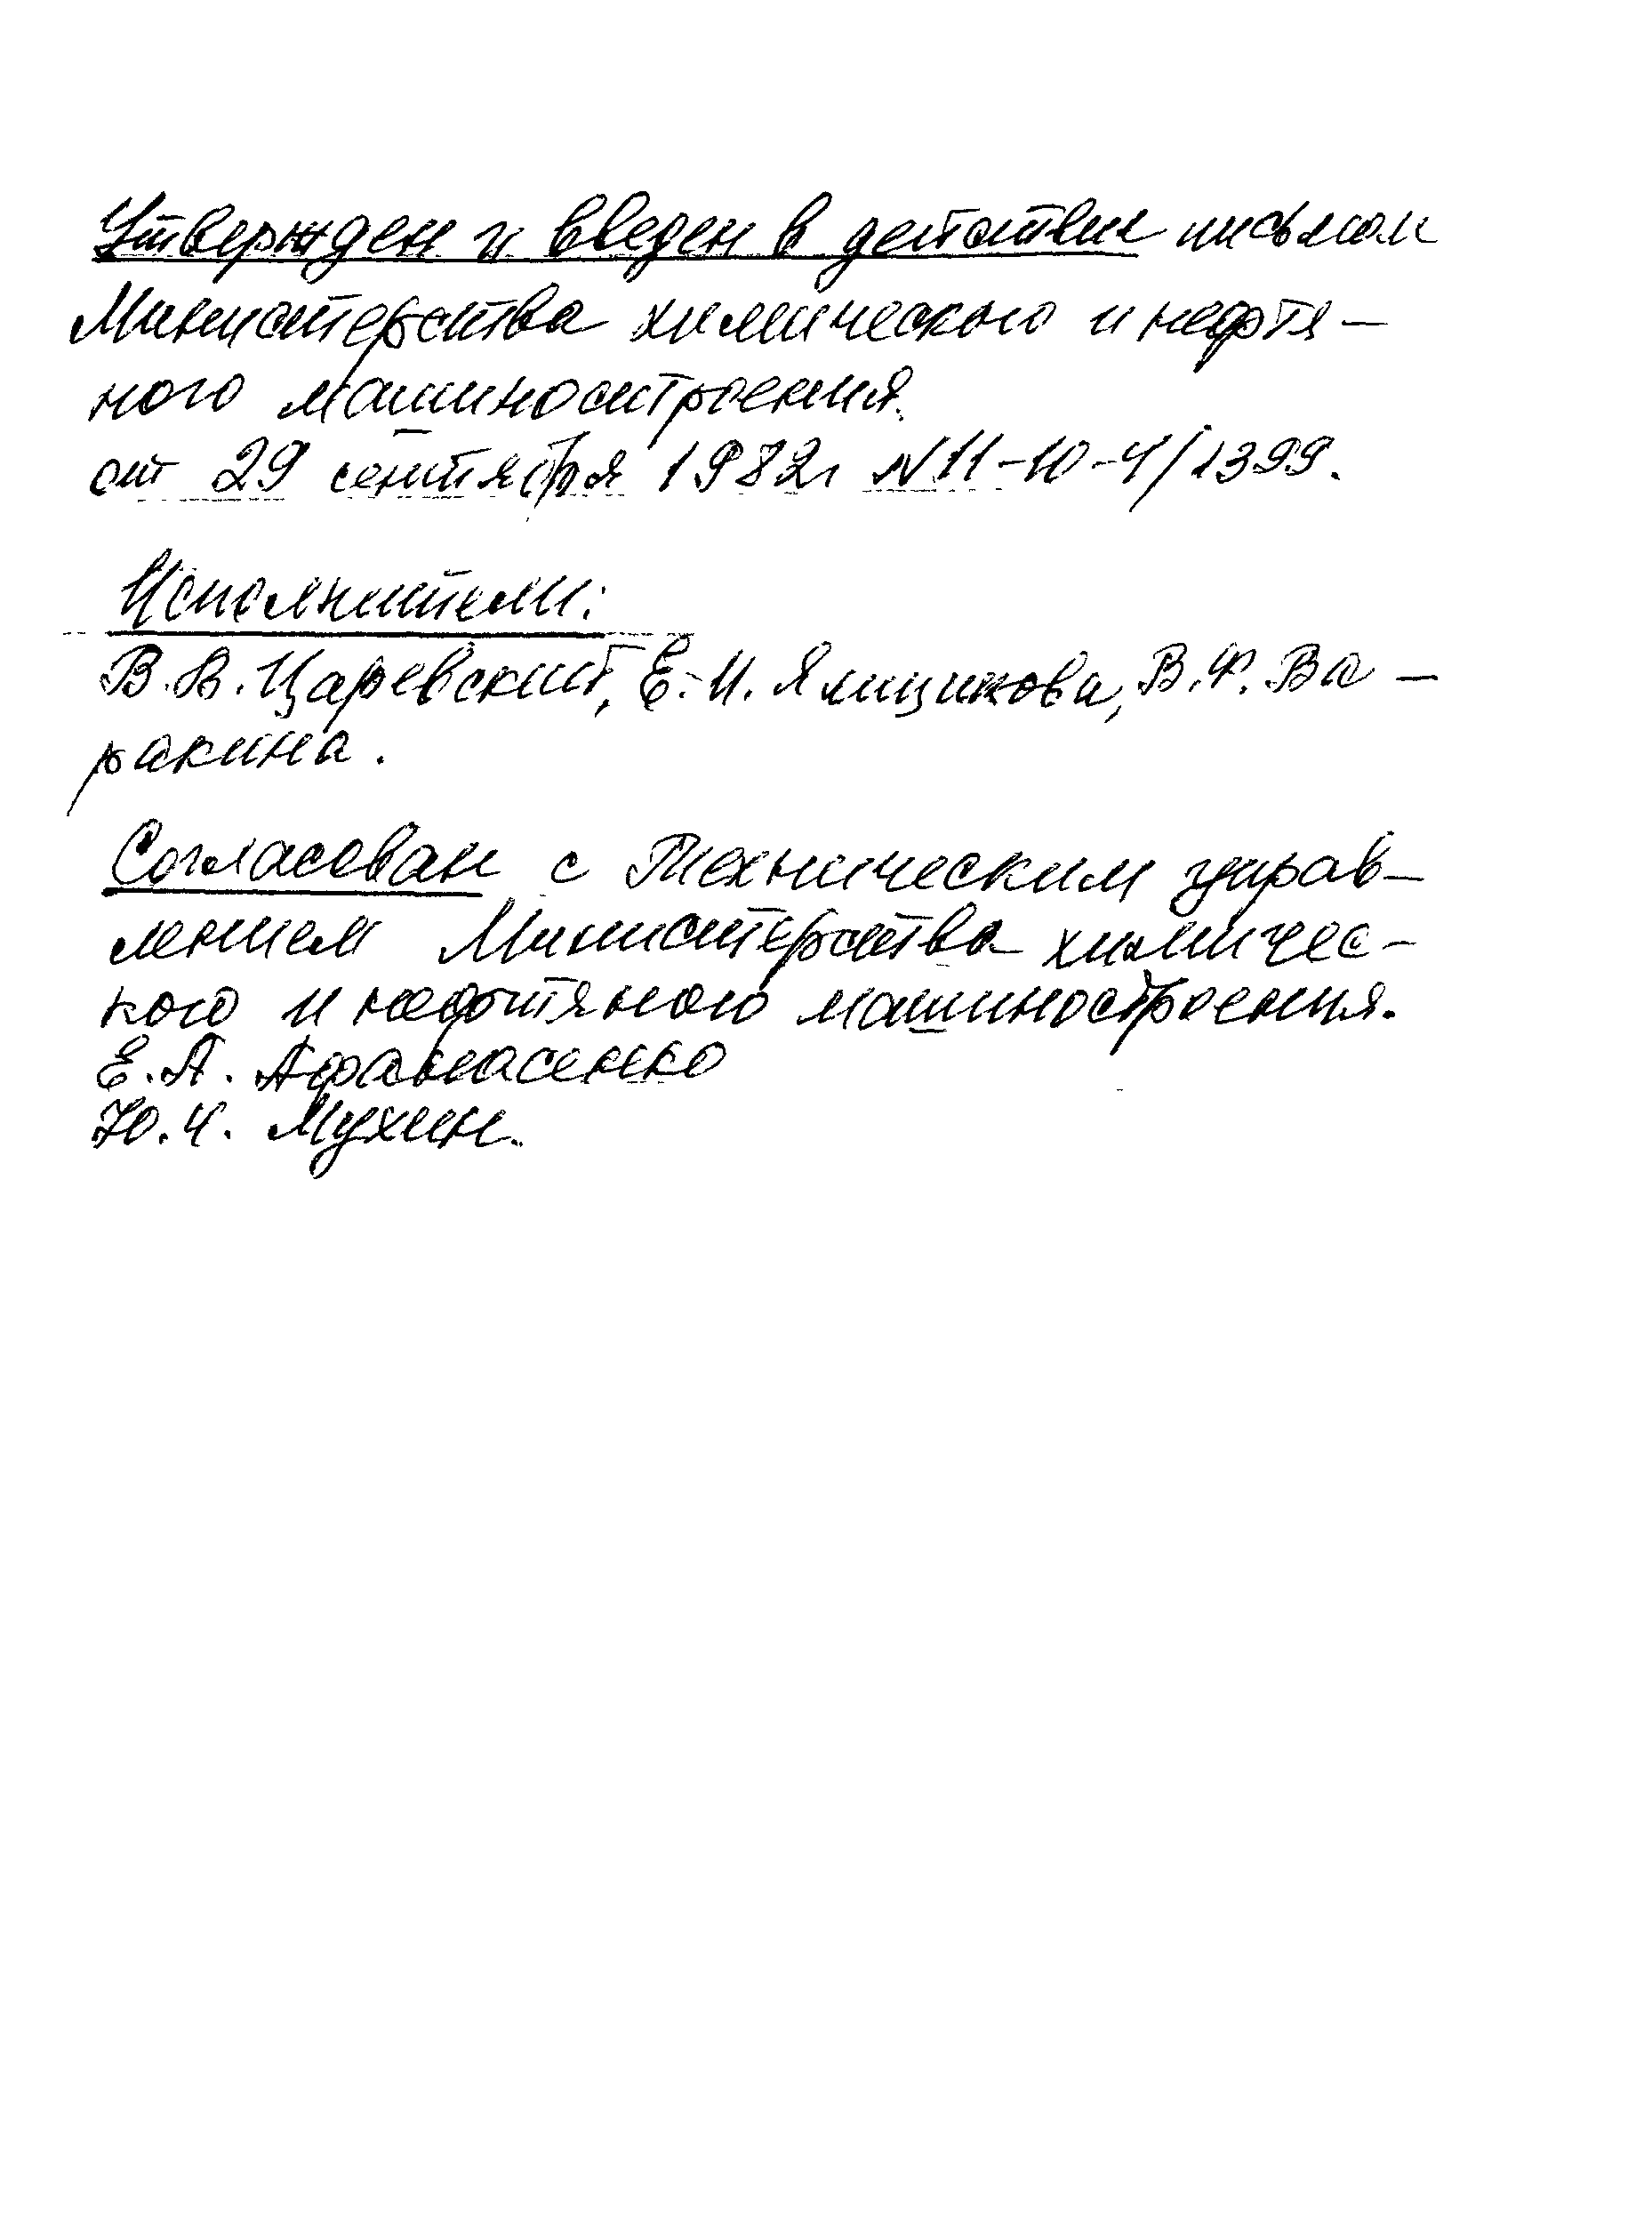 Утвержден и введен в действие письмом
Министерства химического и нефтя-
ного машиностроения.
от 29 сентября 1982г N11-10-4/1399.
Исполнители:
В.В. Царевский, Е.И. Ямщикова, В.Ф. Ва-
ракина.
Согласован с Техническим управ-
лением Министерства химичес-
кого и нефтяного машиностроения.
Е.А. Афанасенко
Ю.Ч. Мухин.